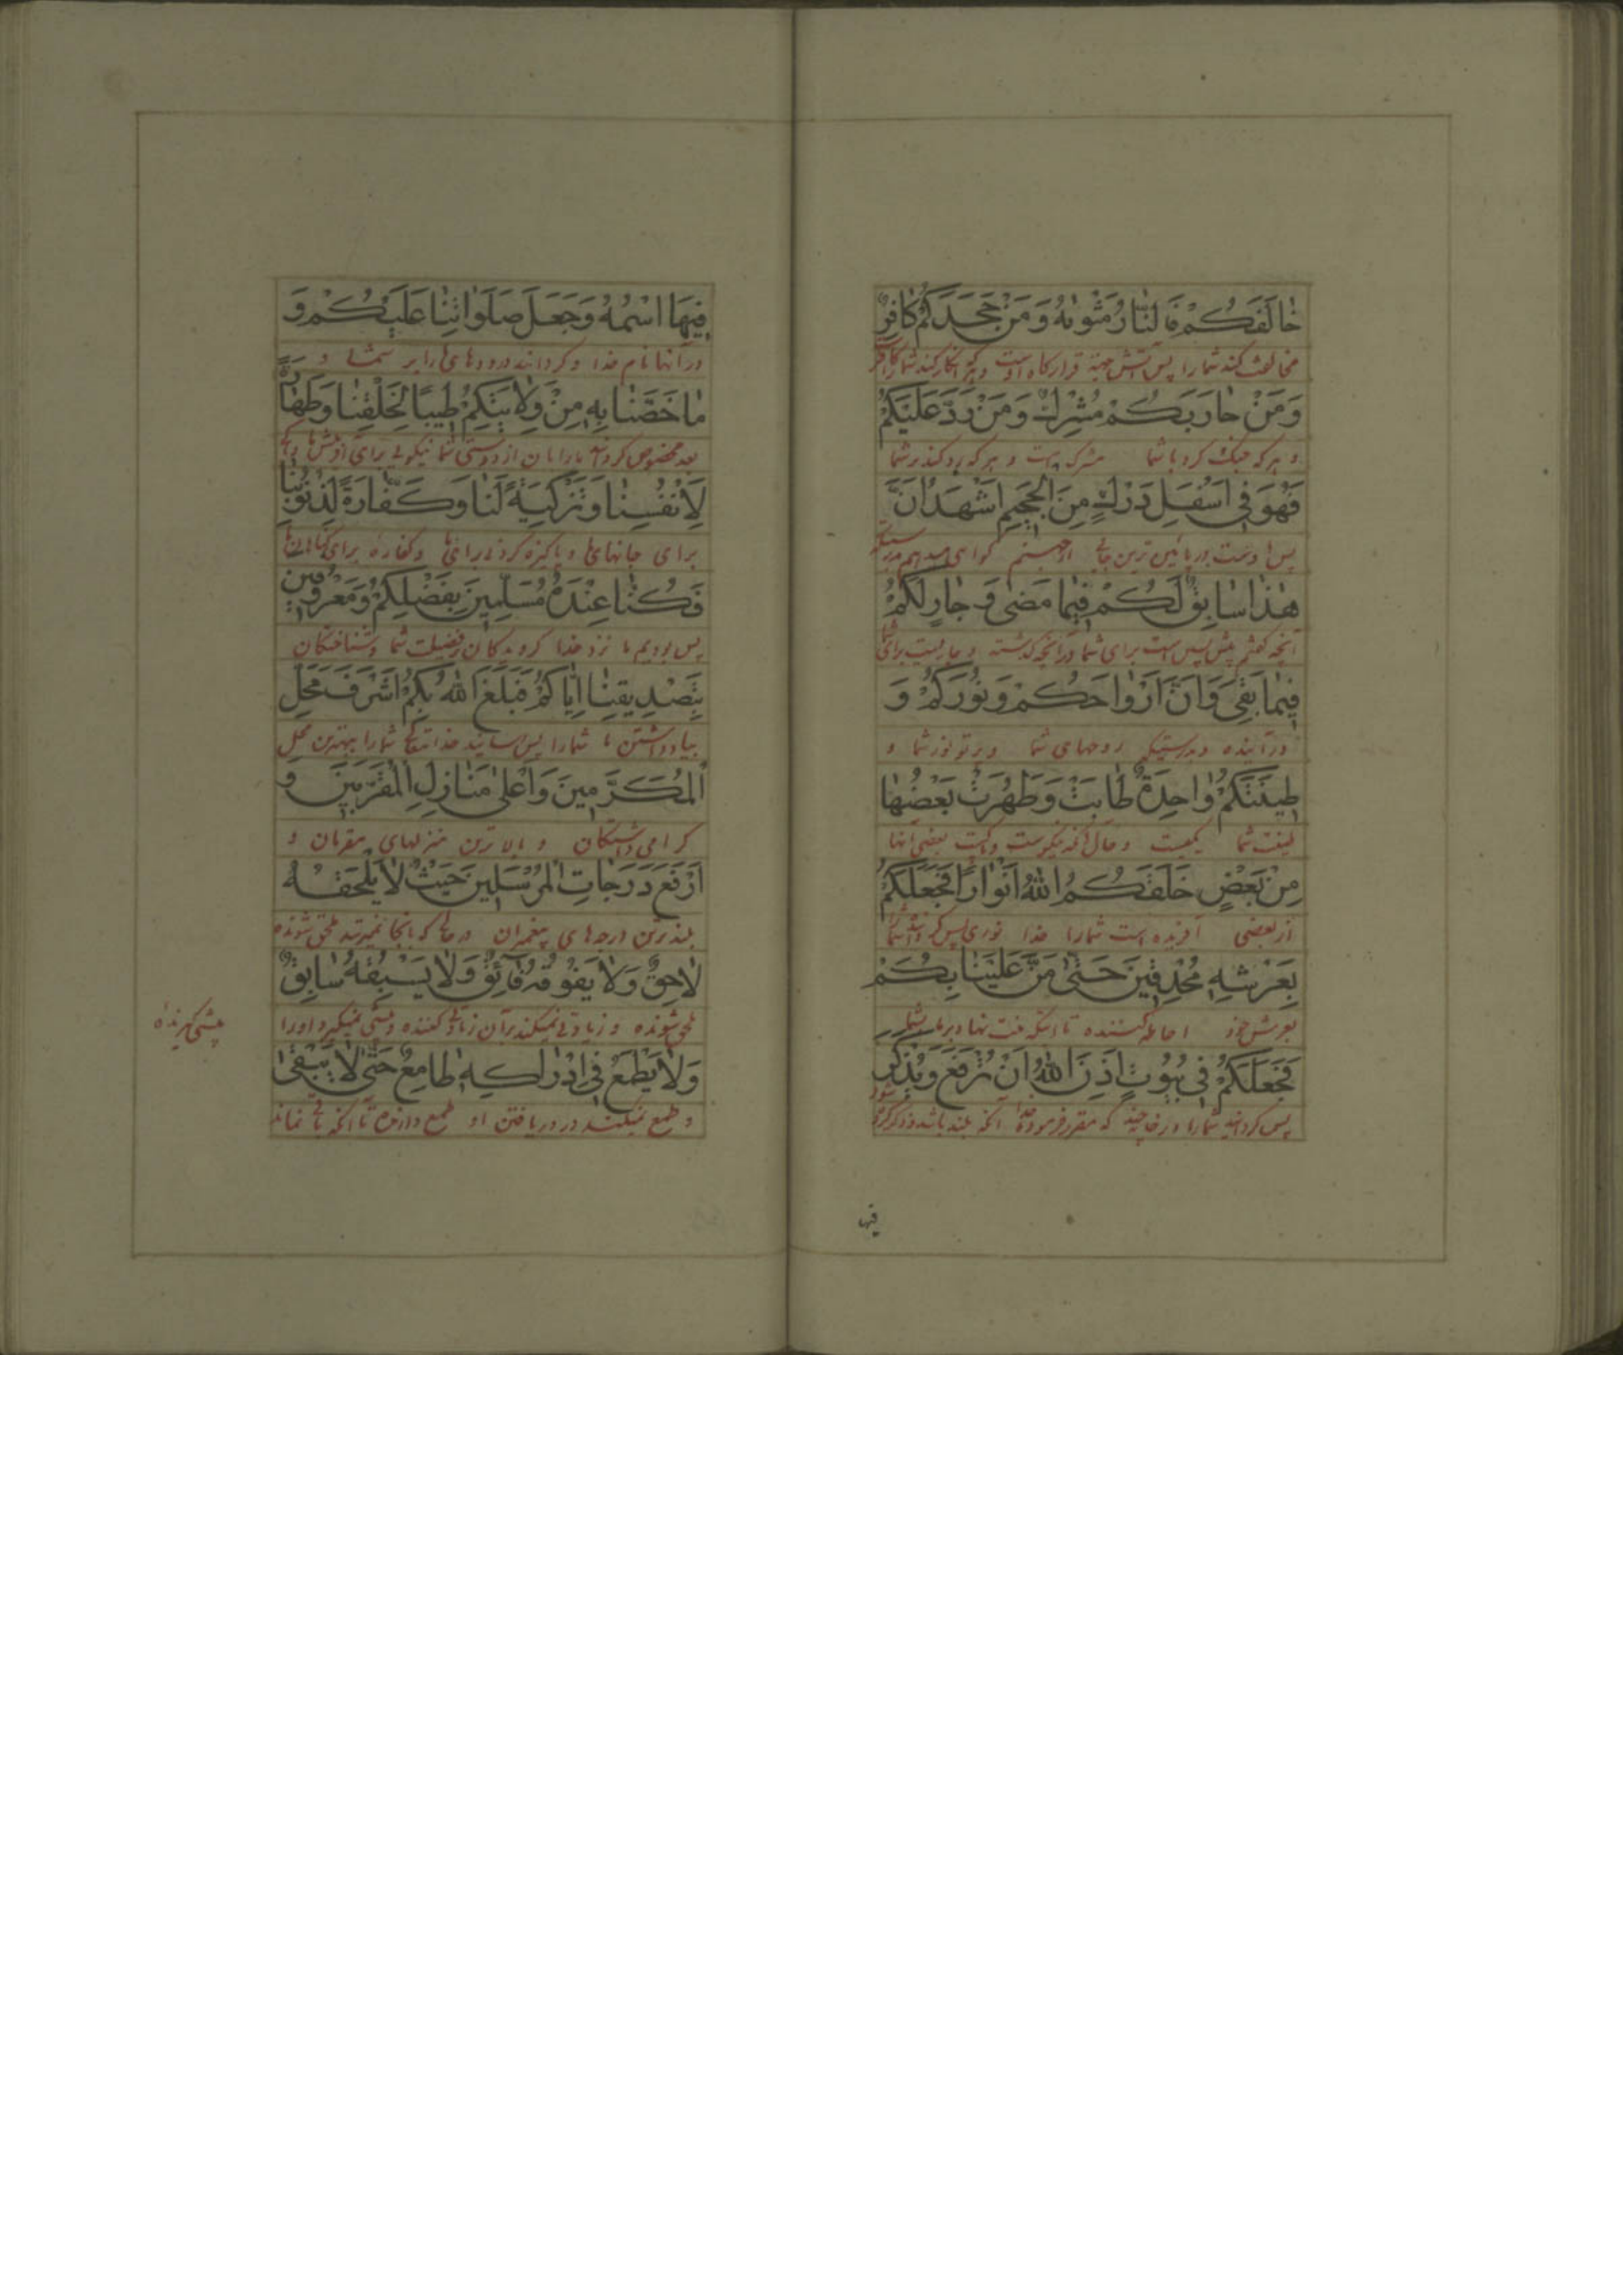 خالَفَكُمْ فَالنّارُ مَثْوٰيهُ وَمَنْ جَحَدَكُمْ كافِرٌ
مخالفت کند شما را پس آتش جهنم قرارکاه اوست و هر که انکار کند شما را کافر
وَمَنْ حارَبَكُمْ مُشْرِكٌ وَمَنْ رَدَّ عَلَيْكُمْ
و هر که جنک کرد با شما مشرک است و هر که رد کند بر شما
فَهُوَ فى اَسْفَلِ دَرْكٍ مِنَ الْجَحيمِ اَشْهَدُ اَنَّ
پس اوست در پائین ترین جای از جهنم کواهی میدهم بدرستیکه
هٰذا سابِقٌ لَكُمْ فيما مَضىٰ وَجارٍ لَكُمْ
آنچه کفتم پیش پیش است برای شما در آنچه کذشته و جاریست برای شما
فيما بَقِىَ وَاَنَّ اَرْواحَكُمْ وَنُورَكُمْ وَ
در آینده و بدرستیکه روحهای شما و پرتو نور شما و
طينَتَكُمْ واحِدَةٌ طابَتْ وَطَهُرَتْ بَعْضُها
طینت شما یکیست و حال آنکه نیکوست و پاکست بعضی آنها
مِنْ بَعْضٍ خَلَقَكُمُ اللهُ اَنْوارًا فَجَعَلَكُمْ
از بعضی آفریده است شما را خدا نوری پس کردانید شما را
بِعَرْشِهِ مُحْدِقينَ حَتّىٰ مَنَّ عَلَيْنا بِكُمْ
بعرش خود احاطه کننده تا اینکه منت نهاد بر ما بشما
فَجَعَلَكُمْ فى بُيُوتٍ اَذِنَ اللهُ اَنْ تُرْفَعَ وَيُذْكَرَ
پس کردانید شما را در خانه چند که مقرر فرموده خدا آنکه بلند باشد و ذکر کرده شود
فیها
فيهَا اسْمُهُ وَجَعَلَ صَلَواتِنا عَلَيْكُمْ وَ
در آنها نام خدا و کردانید درودهای ما را بر شما و
ما خَصَّنا بِهِ مِنْ وِلايَتِكُمْ طيبًا لِخَلْقِنا وَطَهارَةً
مخصوص کرد ما را بآن از دوستی شما نیکوئی برای آفرینش ما و پاکی
لِاَنْفُسِنا وَتَزْكِيَةً لَنا وَكَفّارَةً لِذُنُوبِنا
برای جانهای ما و پاکیزه کردنی برای ما و کفاره برای کناهان ما
فَكُنّا عِنْدَهُ مُسَلِّمينَ بِفَضْلِكُمْ وَمَعْرُوفينَ
پس بودیم ما نزد خدا کرویدکان بفضیلت شما و شناختکان
بِتَصْديقِنا اِيّاكُمْ فَبَلَغَ اللهُ بِكُمْ اَشْرَفَ مَحَلِّ
بباور داشتن ما شما را پس رسانید خدایتعالی شما را بهترین محل
الْمُكَرَّمينَ وَاَعْلىٰ مَنازِلِ الْمُقَرَّبينَ وَ
کرامی داشتکان و بالاترین منزلهای مقربان و
اَرْفَعَ دَرَجاتِ الْمُرْسَلينَ حَيْثُ لا يَلْحَقُهُ
بلندترین درجهای پیغمبران درجائی که بآنجا نمیرسد ملحق شونده
لاحِقٌ وَلا يَفُوقُهُ فائِقٌ وَلا يَسْبِقُهُ سابِقٌ
ملحق شونده و زیادتی نمیکند بر آن زیادتی کننده و پیشی نمیکیرد او را
پیشی کیرنده
وَلا يَطْمَعُ فى اِدْراكِهِ طامِعٌ حَتّىٰ لا يَبْقىٰ
و طمع نمیکند در دریافتن او طمع دارنده تا آنکه باقی نماند